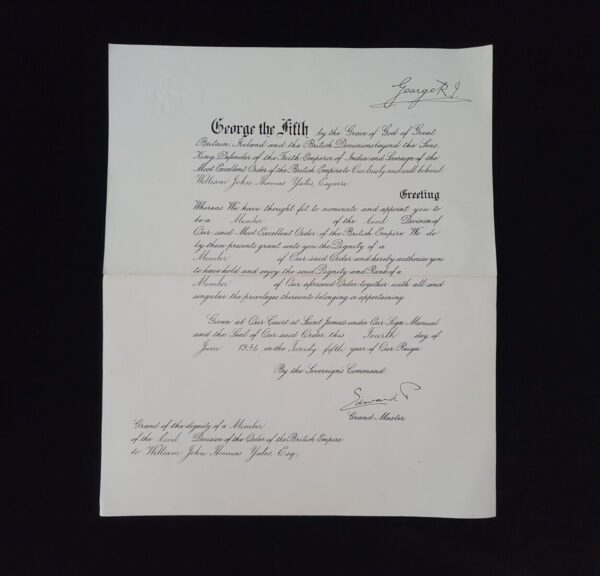 George R.I.
George the Fifth by the Grace of God of Great
Britain, Ireland and the British Dominions beyond the Seas,
King, Defender of the Faith, Emperor of India and Sovereign of the
Most Excellent Order of the British Empire to Our trusty and well beloved
William John Thomas Yules, Esquire
Greeting
Whereas We have thought fit to nominate and appoint you to
be a Member of the Civil Division of
Our said Most Excellent Order of the British Empire We do
by these presents grant unto you the Dignity of a
Member of Our said Order and hereby authorise you
to have hold and enjoy the said Dignity and Rank of a
Member of Our aforesaid Order together with all and
singular the privileges thereunto belonging or appertaining.
Given at Our Court at Saint James's under Our Sign Manual
and the Seal of Our said Order, this Fourth day of
June 1934, in the Twenty fifth year of Our Reign.
By the Sovereign's Command.
Edward P
Grand-Master.
Grant of the dignity of a Member
of the Civil Division of the Order of the British Empire
to William John Thomas Yules, Esq.